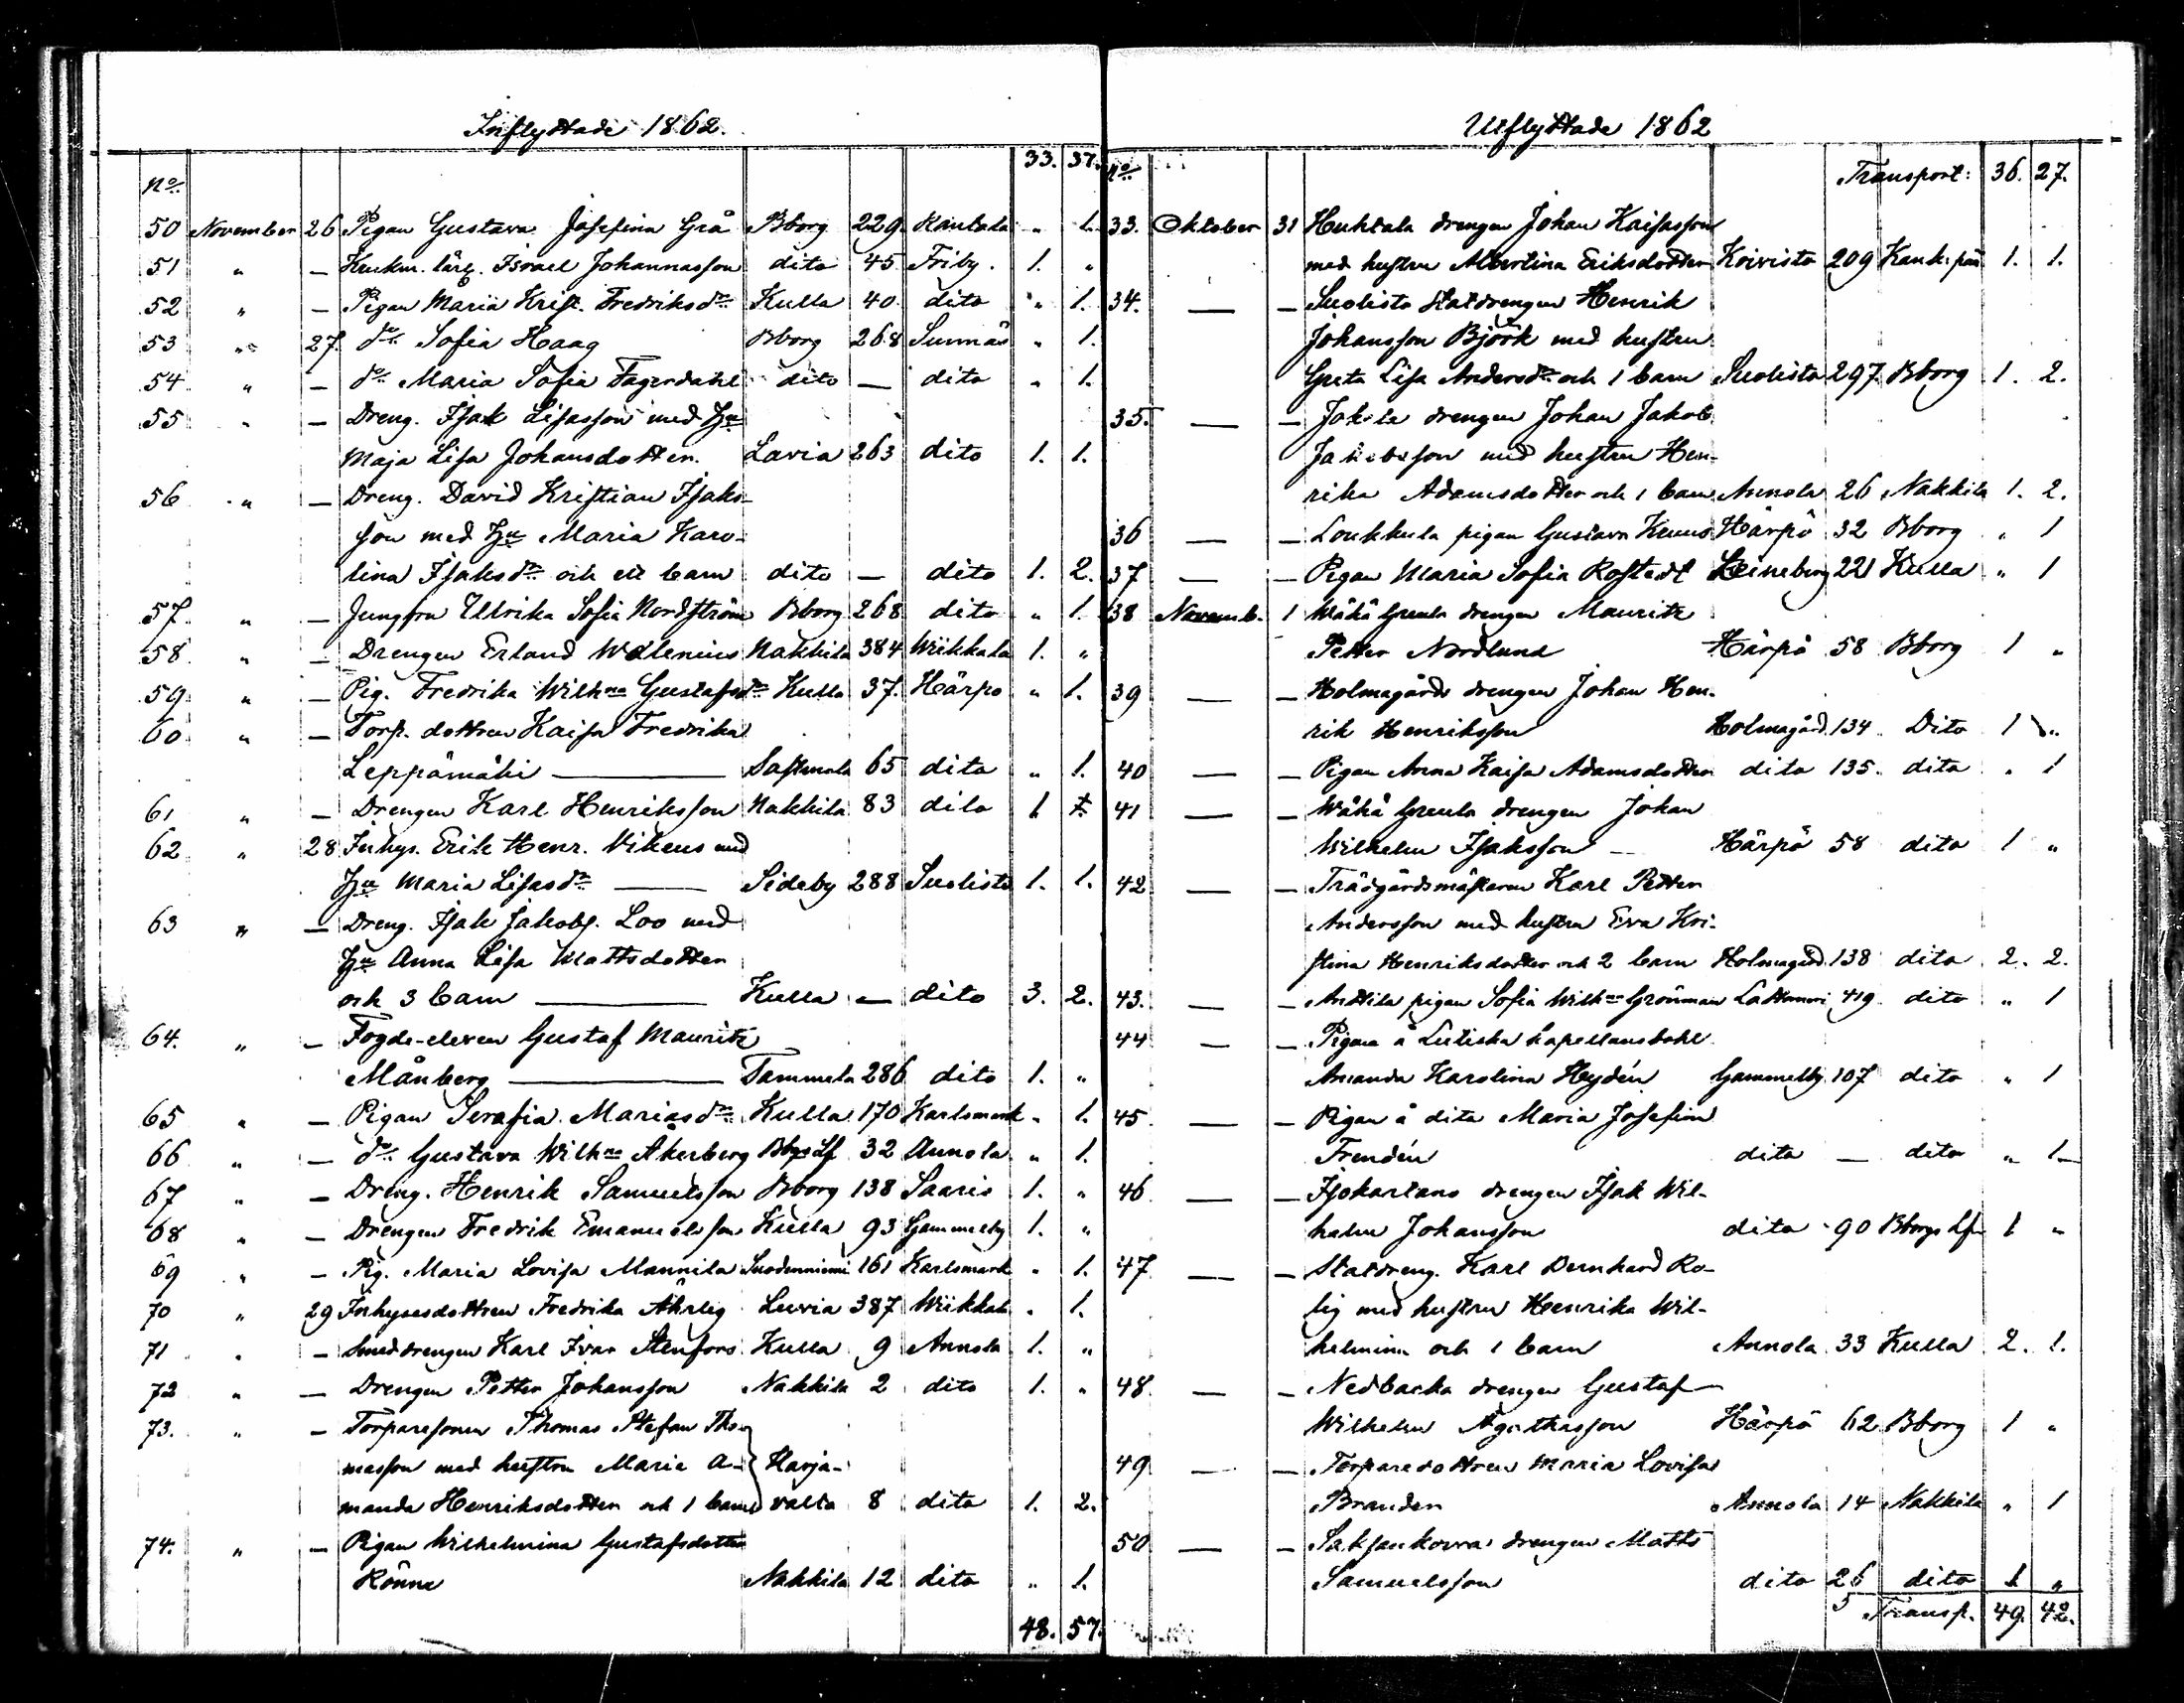 Inflyttade 1862.
33. 37.
No
50 November 26 Pigan Gustava Josefina Grå Bborg 229. Rautala " 1.
51 " — Krukm. lärl. Israel Johannasson dito 45 Friby. 1. "
52 " — Pigan Maria Krist. Fredriksdr Kulla 40 dito " 1.
53 " 27. do Sofia Haag Bborg 268 Sunnäs " 1.
54 " — do Maria Sofia Fagerdahl dito — dito " 1.
55 " — Dreng. Isak Lisasson med Hu
Maja Lisa Johansdotter. Lavia 263 dito 1. 1.
56 " — Dreng. David Kristian Isaks-
son med Hu Maria Karo-
lina Isaksdr och ett barn dito — dito 1. 2.
57. " — Jungfru Ullrika Sofia Nordström Bborg 268 dito " 1.
58 " — Drengen Erland Welenius Nakkila 384 Wiikkala 1. "
59 " — Pig. Fredrika Wilhna Gustafsdr Kulla 37. Härpö " 1.
60 " — Torp. dottren Kaisa Fredrika
Leppämäki — Sastmola 65 dito " 1.
61 " — Drengen Karl Henriksson Nakkila 83 dito 1
62 " 28 Inhys. Erik Henr. Vikeus med
Hu Maria Lisasdr — Sideby 288 Suolisto 1. 1.
63 " — Dreng. Isak Jakobs. Loo med
Hu Anna Lisa Mattsdotter
och 3 barn — Kulla — dito 3. 2.
64. " — Fogde-eleven Gustaf Mauritz
Månberg — Tammela 286 dito 1. "
65 " — Pigan Serafia Mariasdr Kulla 170 Karlsmark " 1.
66 " — do Gustava Wilhna Åkerberg Bbgs Lf 32 Annola " 1.
67 " — Dreng. Henrik Samuelsson Bborg 138 Saaris 1. "
68 " — Drengen Fredrik Emanuelsson Kulla 93 Gammelby 1. "
69 " — Pig. Maria Lovisa Mannila Suodenniemi 161 Karlsmark " 1.
70 " 29 Inhysesdottren Fredrika Ährlig Luvia 387 Wiikkala " 1.
71 " — Smeddrengen Karl Ivar Stenfors Kulla 9 Annola 1. "
72 " — Drengen Petter Johansson Nakkila 2 dito 1. "
73. " — Torparesonen Thomas Stefan Tho-
masson med hustru Maria A- Harja-
manda Henriksdotter och 1 barn valta 8 dito 1. 2.
74. " — Pigan Wilhelmina Gustafsdotter
Rönne Nakkila 12 dito " 1.
48. 57.
Utflyttade 1862
No Transport: 36. 27.
33. Oktober 31 Huhtala drengen Johan Kaisasson
med hustru Albertina Eriksdotter Koivisto 209 Kank:pää 1. 1.
34. — — Suolisto Statdrengen Henrik
Johansson Björk med hustru
Greta Lisa Andersdr och 1 barn Suolisto 297. Bborg 1. 2.
35. — — Jakola drengen Johan Jakob
Jakobsson med hustru Hen-
rika Adamsdotter och 1 barn Annola 26 Nakkila 1. 2.
36 — — Loukkula pigan Gustava Kuus Härpö 32 Bborg " 1
37 — — Pigan Maria Sofia Rostedt Leineberg 221 Kulla " 1
38 Novemb. 1 Wähä Greula drengen Mauritz
Petter Nordlund Härpö 58 Bborg 1 "
39 — — Holmagårds drengen Johan Hen-
rik Henriksson Holmagård 134 Dito 1 "
40 — — Pigan Anna Kaisa Adamsdotter dito 135. dito " 1
41 — — Wähä Greula drengen Johan
Wilhelm Isaksson — Härpö 58 dito 1 "
42 — — Trädgårdsmästaren Karl Petter
Andersson med hustru Eva Kri-
stina Henriksdotter och 2 barn Holmagård. 138 dito 2. 2.
43. — — Anttila pigan Sofia Wilhna Grönman Lattomeri 419 dito " 1
44 — — Pigan å kapellansbohl
Amanda Karolina Heydén Gammelby 107 dito " 1
45 — — Pigan å dito Maria Josefina
Frendén dito — dito " 1
46 — — Isokartano drengen Isak Wil-
helm Johansson dito 90 Bborgs Lfn 1 "
47 — — Statdreng. Karl Bernhard Ro-
lig med hustru Henrika Wil-
helmina och 1 barn Annola 33 Kulla 2. 1.
48 — — Nedbacka drengen Gustaf
Wilhelm Agathasson Härpö 62 Bborg 1 "
49 — — Torparedottren Maria Lovisa
Brander Annola 14 Nakkila " 1
50 — — Saksankovra drengen Matts
Samuelsson dito 26 dito 1 "
Transp. 49. 42.